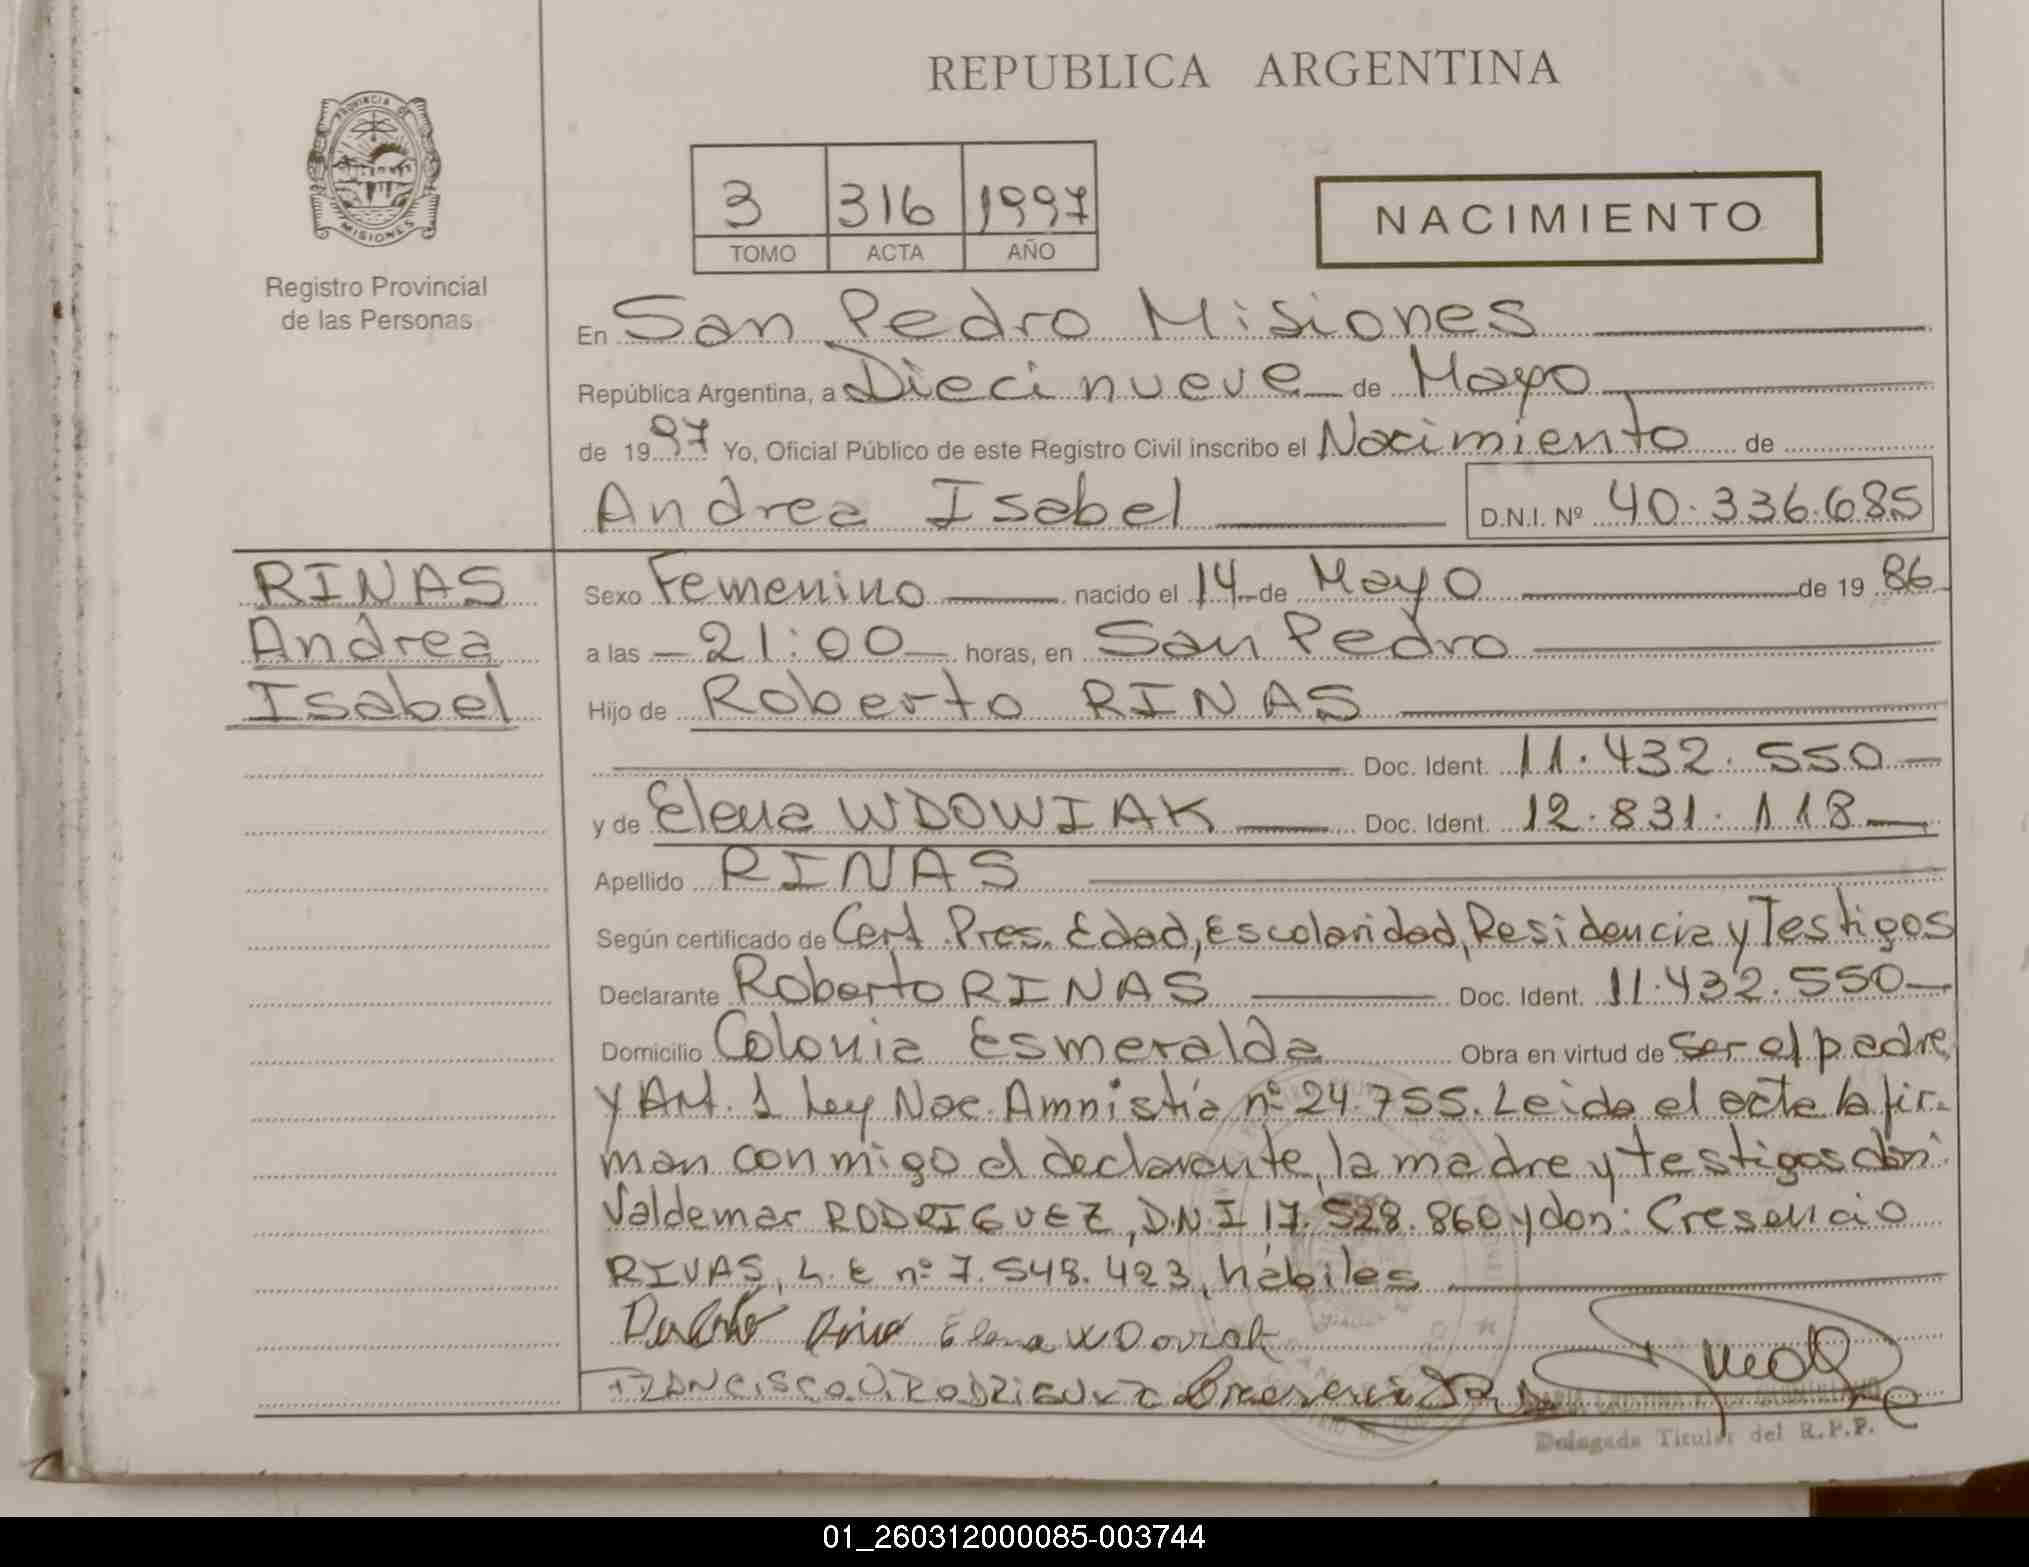 REPUBLICA ARGENTINA
PROVINCIA DE
MISIONES
Registro Provincial
de las Personas
3 316 1997
TOMO ACTA AÑO
NACIMIENTO
En San Pedro Misiones
República Argentina, a Diecinueve de Mayo
de 1997 Yo, Oficial Público de este Registro Civil inscribo el Nacimiento de
Andrea Isabel D.N.I. Nº 40.336.685
RINAS
Andrea
Isabel
Sexo Femenino nacido el 14 de Mayo de 1986
a las 21:00 horas, en San Pedro
Hijo de Roberto RINAS
Doc. Ident. 11.432.550
y de Elena WDOWIAK Doc. Ident. 12.831.118
Apellido RINAS
Según certificado de Cert. Pres. Edad, Escolaridad, Residencia y Testigos
Declarante Roberto RINAS Doc. Ident. 11.432.550
Domicilio Colonia Esmeralda Obra en virtud de ser el padre
y Art. 1 Ley Nac. Amnistía nº 24.755. Leida el acta la fir-
man conmigo el declarante, la madre y testigos don:
Valdemar RODRIGUEZ, D.N.I 17.528.860 y don: Cresencio
RIVAS, L.E nº 7.548.423, hábiles
Elena WDowiak
FRANCISCO.V.RODRIGUEZ
Delegada Titular del R.P.P.
01_260312000085-003744